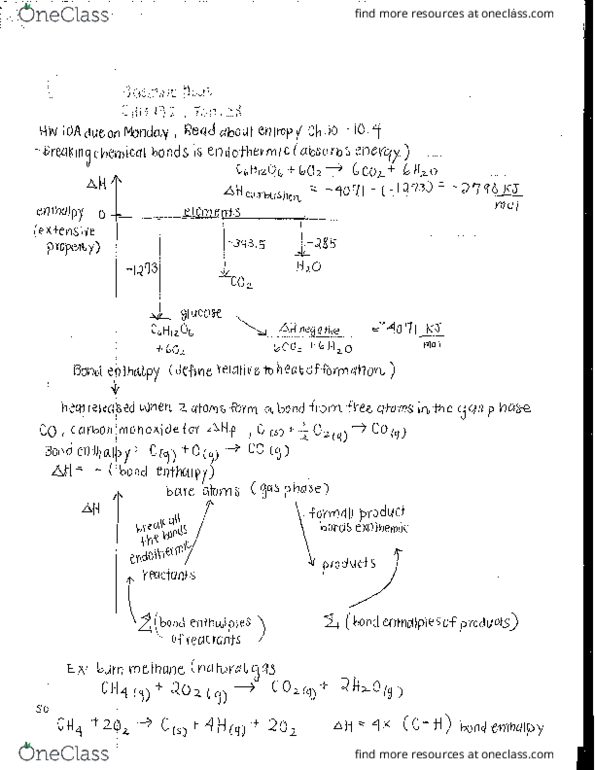 OneClass
find more resources at oneclass.com
HW 10A due on Monday, Read about entropy Ch.10 - 10.4
- Breaking chemical bonds is endothermic (absorbs energy)
C6H12O6 + 6O2 → 6CO2 + 6H2O
ΔH combustion = -4071 - (-1273) = -2798 KJ/mol
ΔH
enthalpy 0 elements
(extensive property)
-1273
-393.5
-285
CO2
H2O
glucose
C6H12O6
+6O2
ΔH negative
6CO2 + 6H2O
= -4071 KJ/mol
Bond enthalpy (define relative to heat of formation)
heat released when 2 atoms form a bond from free atoms in the gas phase
CO, carbon monoxide for ΔHf, C(s) + 1/2 O2(g) → CO(g)
Bond enthalpy: C(g) + O(g) → CO(g)
ΔH = - (bond enthalpy)
ΔH
bare atoms (gas phase)
break all the bonds endothermic
reactants
form all product bonds exothermic
products
Σ (bond enthalpies of reactants)
Σ (bond enthalpies of products)
Ex: burn methane (natural gas
CH4(g) + 2O2(g) → CO2(g) + 2H2O(g)
so
CH4 + 2O2 → C(s) + 4H(g) + 2O2 ΔH = 4x (C-H) bond enthalpy
OneClass
find more resources at oneclass.com